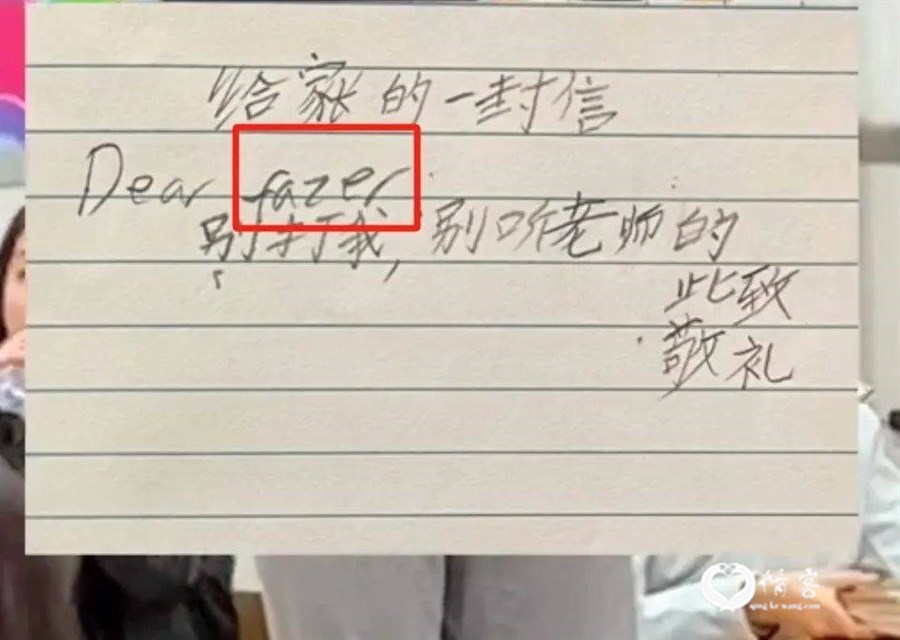 给家长的一封信
Dear fazer
别打我，别听老师的
此致
敬礼
情客
qing ke wang.com